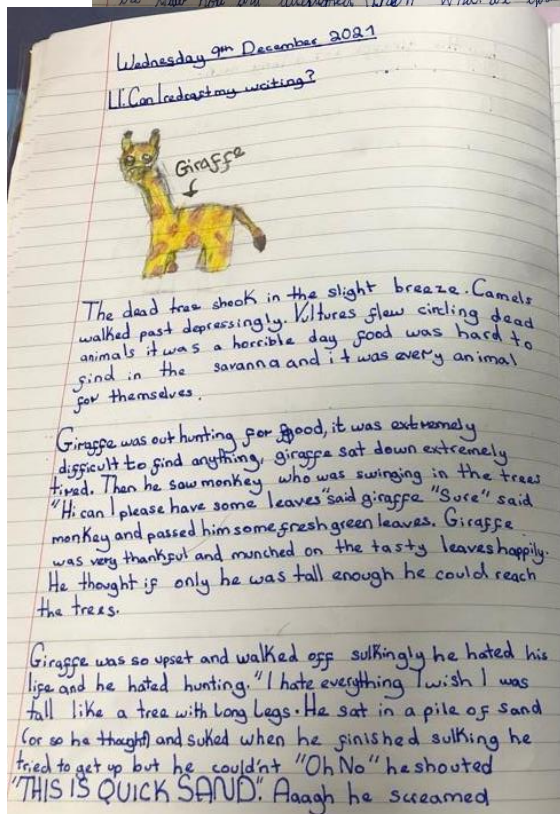 Wednesday 9th December 2021
LI: Can I redraft my writing?
Giraffe
The dead tree shook in the slight breeze. Camels
walked past depressingly. Vultures flew circling dead
animals it was a horrible day food was hard to
find in the savanna and it was every animal
for themselves.
Giraffe was out hunting for food, it was extremely
difficult to find anything, giraffe sat down extremely
tired. Then he saw monkey who was swinging in the trees
"Hi can I please have some leaves" said giraffe "Sure" said
monkey and passed him some fresh green leaves. Giraffe
was very thankful and munched on the tasty leaves happily.
He thought if only he was tall enough he could reach
the trees.
Giraffe was so upset and walked off sulkingly he hated his
life and he hated hunting. "I hate everything I wish I was
tall like a tree with Long Legs. He sat in a pile of sand
(or so he thought) and suked when he finished sulking he
tried to get up but he could'nt "Oh No" he shouted
"THIS IS QUICK SAND". Aaagh he screamed